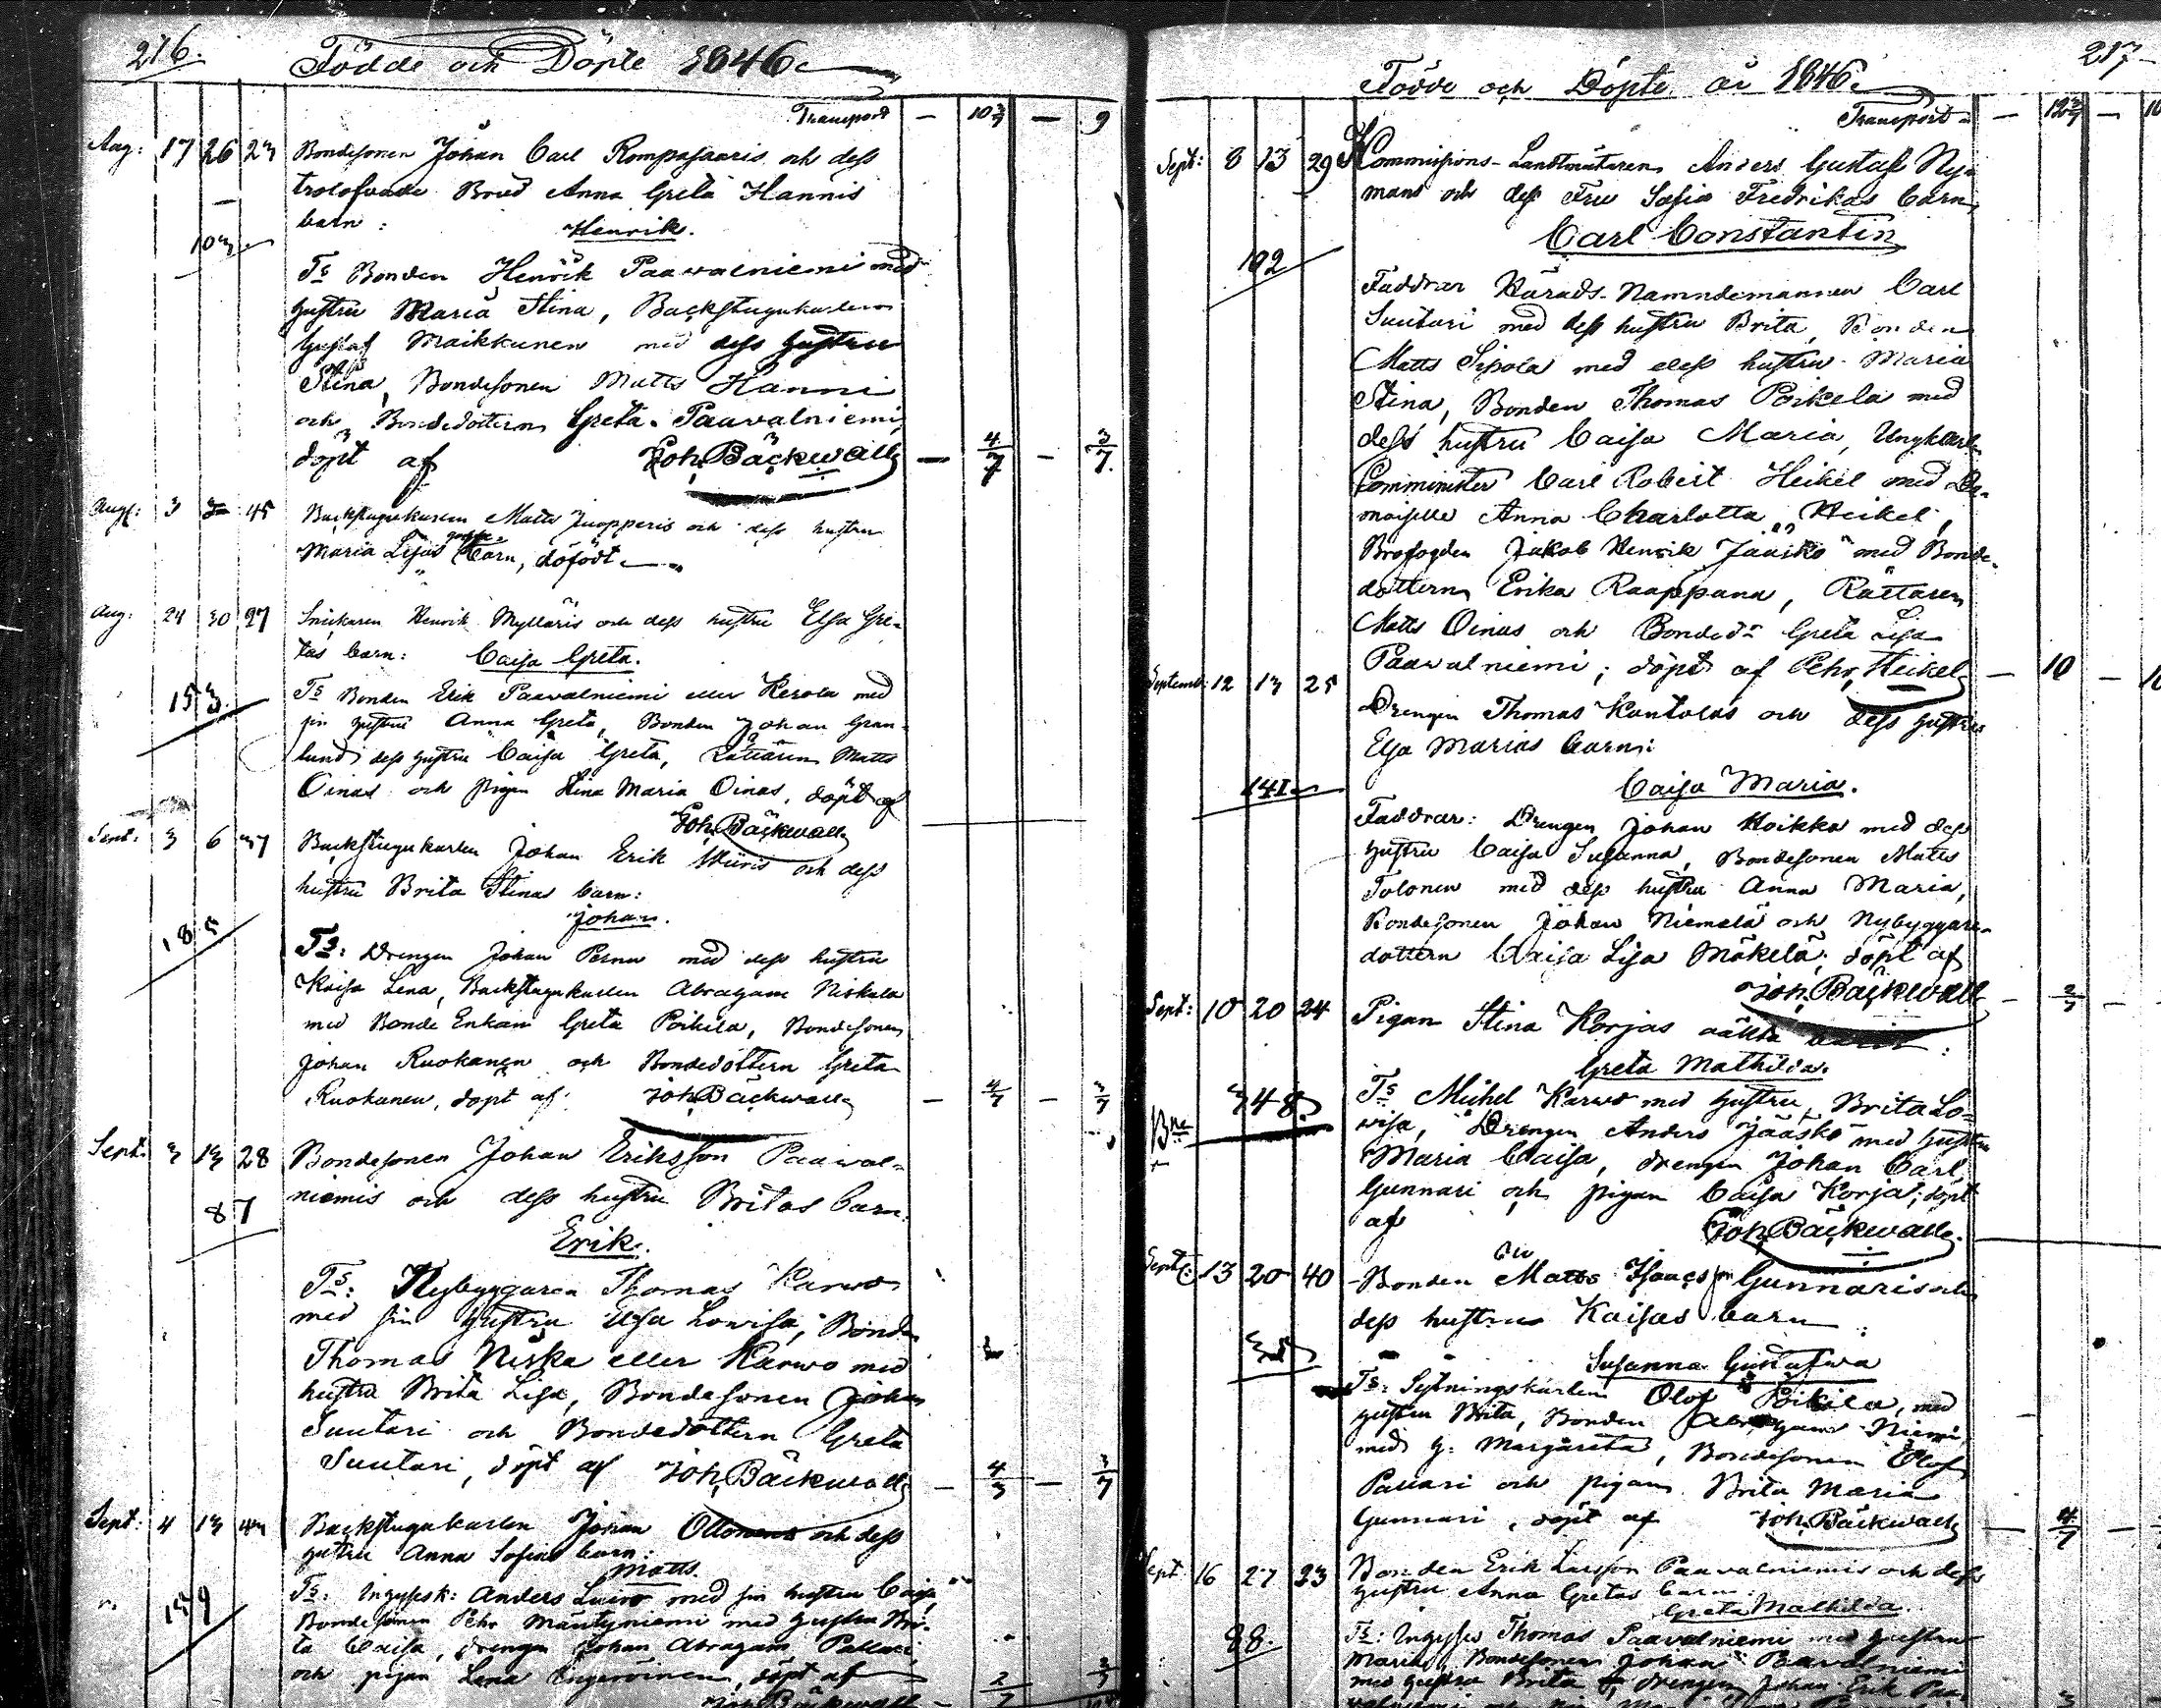 216.
Födde och Döpte 1846
Transport — 10 3/7 — 9
Aug: 17 26 23 Bondesonen Johan Carl Rompasaaris och dess
trolofvade Brud Anna Greta Hannis
barn:
Henrik.
103
Ts Bonden Henrik Paavalniemi med
hustru Maria Stina, Backstugukarlen
Gustaf Maikkunen med dess hustru
Stina, Bondesonen Matts Hanni
och Bondedottern Greta Paavalniemi,
döpt af Joh. Bäckwall — 4/7 — 3/7
Aug: 3 45 Backstugukarlen Matts Juopperis och dess hustru
Maria Lisas barn, dödfödt
Aug: 24 30 27 Snickaren Henrik Mylläris och dess hustru Elsa Gre-
tas barn: Caisa Greta.
153.
Ts Bonden Erik Paavalniemi eller Kerola med
sin hustru Anna Greta, Bonden Johan Gran-
lund dess hustru Caisa Greta, Rättaren Matts
Oinas och pigan Stina Maria Oinas, döpt af
Joh. Bäckwall
Sept: 3 6 37 Backstugukarlen Johan Erik och dess
hustru Brita Stinas barn:
Johan.
185
Ts: Drengen Johan Pernu med dess hustru
Kaisa Lena, Backstugukarlen Abraham Niskala
med Bonde Enkan Greta Poikela, Bondesonen
Johan Ruokanen och Bondedottern Greta
Ruokanen, döpt af Joh. Bäckwall — 4/7 — 3/7
Sept: 3 13 28 Bondesonen Johan Eriksson Paaval-
niemis och dess hustru Britas barn:
87
Erik.
Ts: Nybyggaren Thomas Karwo
med sin hustru Elsa Lowisa, Bonden
Thomas Niska eller Karwo med
hustru Brita Lisa, Bondesonen Johan
Suutari och Bondedottern Greta
Suutari, döpt af Joh. Bäckwall — 4/3 — 3/7
Sept: 4 13 43 Backstugukarlen Johan Ollonens och dess
hustru Anna Sofias barn:
Matts.
159
Ts: Inhysesk: Anders Luiro med sin hustru Caisa,
Bondesonen Pehr Mäntyniemi med hustru Bri-
ta Caisa, drengen Johan Abraham Pallari
och pigan Lena döpt af
Joh. Bäckwall — 2/7 3/7
217
Födde och Döpte år 1846.
Transport — 12 3/7 — 10
Sept: 8 13 29 Commissions-Landtmätaren Anders Gustaf Ny-
mans och dess Fru Sofia Fredrikas barn
Carl Constantin
192
Faddrar Härads-Namndemannen Carl
Suutari med dess hustru Brita, Bonden
Matts Sipola med dess hustru Maria
Stina, Bonden Thomas Poikela med
dess hustru Caisa Maria, Ungkarln
Comminister Carl Robert Heikel med De-
moiselle Anna Charlotta Heikel,
Brofogden Jakob Henrik Jääskö med Bonde-
dottern Erika Raappana, Rättaren
Matts Oinas och Bonded:r Greta Lisa
Paavalniemi; döpt af Pehr Heikel — 10 — 10
Septemb: 12 13 25 Drengen Thomas Kantolas och dess hustrus
Elsa Marias barn:
Caisa Maria.
141
Faddrar: Drengen Johan Hoikka med dess
hustru Caisa Susanna, Bondesonen Matts
Tolonen med dess hustru Anna Maria,
Bondesonen Johan Niemelä och Nybyggare-
dottern Caisa Lisa Mäkelä; döpt af
Joh. Bäckwall — 2/7 —
Sept: 10 20 24 Pigan Stina Korjas oäkta barn:
Greta Mathilda.
348.
Ts Michel Karwo med hustru Brita Lo-
wisa, Drengen Anders Jääskö med hustru
Maria Caisa, drengen Johan Carl
Gunnari och pigan Caisa Korja; döpt
af Joh. Bäckwall.
Sept: 13 20 40 Bonden Matts Isacsson Gunnaris och
dess hustrus Kaisas barn:
Susanna Gustafwa
Ts: Sytningskarlen Olof Poikela, med
hustru Brita, Bonden Abraham Niemi,
med h: Margareta, Bondesonen Olof
Pallari och pigan Brita Maria
Gunnari, döpt af Joh. Bäckwall — 4/7 —
Sept: 16 27 23 Bonden Erik Larsson Paavalniemis och dess
hustru Anna Gretas barn:
Greta Mathilda.
88.
Ts: Inhyses Thomas Paavalniemi med hustru
Maria, Bondesonen Johan Paavalniemi
med hustru Brita, drengen Johan Erik Paa-